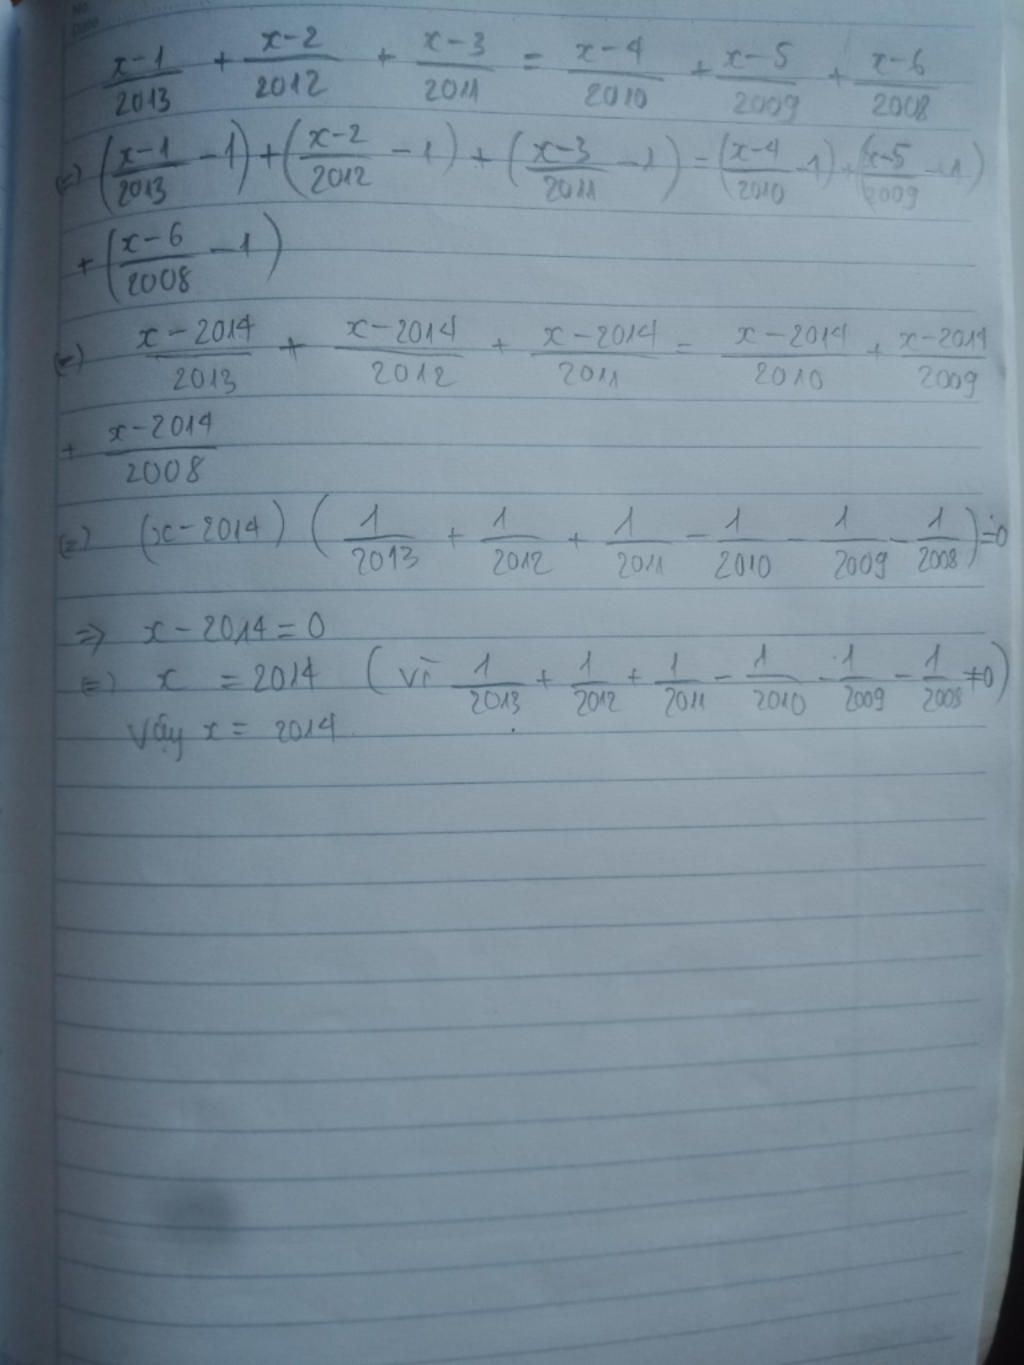 No.
Date
x-1/2013 + x-2/2012 + x-3/2011 = x-4/2010 + x-5/2009 + x-6/2008
(=) (x-1/2013 - 1) + (x-2/2012 - 1) + (x-3/2011 - 1) = (x-4/2010 - 1) + (x-5/2009 - 1)
+ (x-6/2008 - 1)
(=) x-2014/2013 + x-2014/2012 + x-2014/2011 = x-2014/2010 + x-2014/2009
+ x-2014/2008
(=) (x-2014) (1/2013 + 1/2012 + 1/2011 - 1/2010 - 1/2009 - 1/2008) = 0
=> x - 2014 = 0
(=) x = 2014 (vì 1/2013 + 1/2012 + 1/2011 - 1/2010 - 1/2009 - 1/2008 ≠ 0)
Vậy x = 2014.